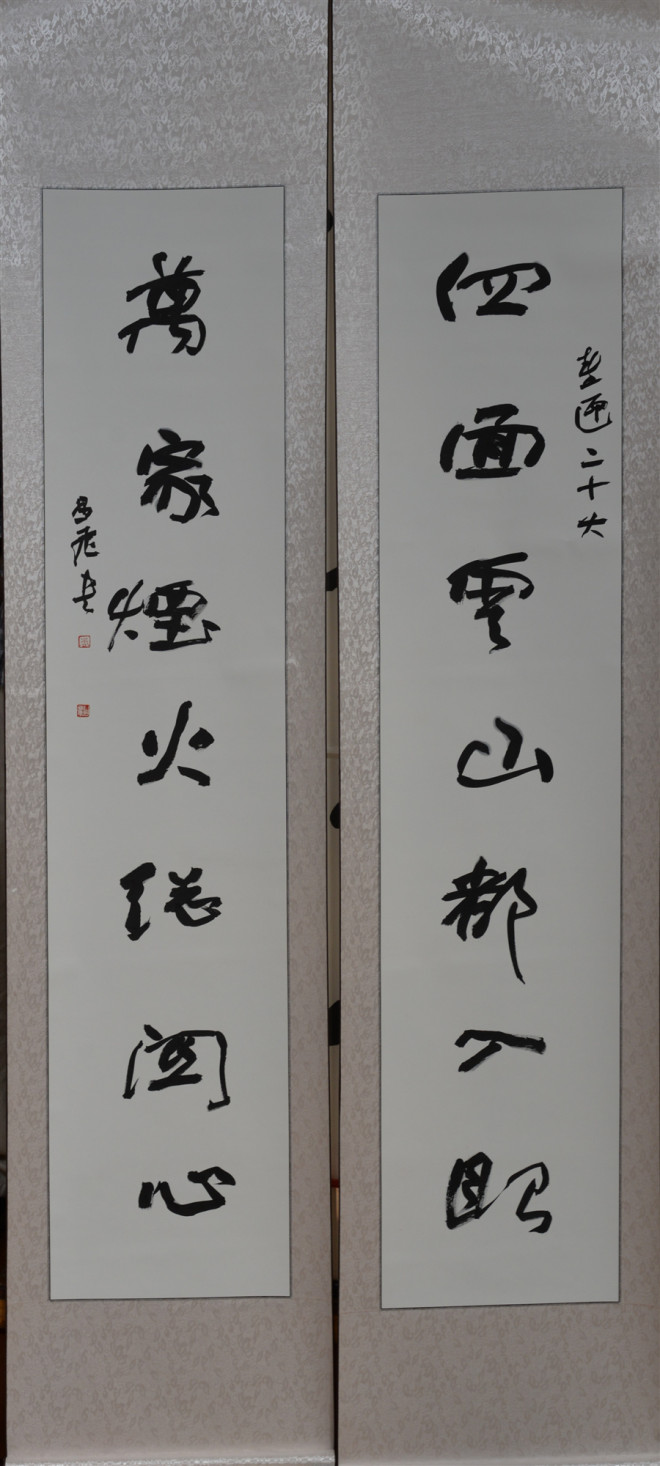 四面雲山都入眼
喜迎二十大
萬家煙火總關心